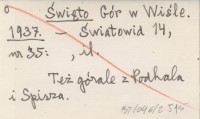 Święto Gór w Wiśle.
1937. — Światowid 14,
nr 35: , il.
Też górale z Podhala
i Spisza.